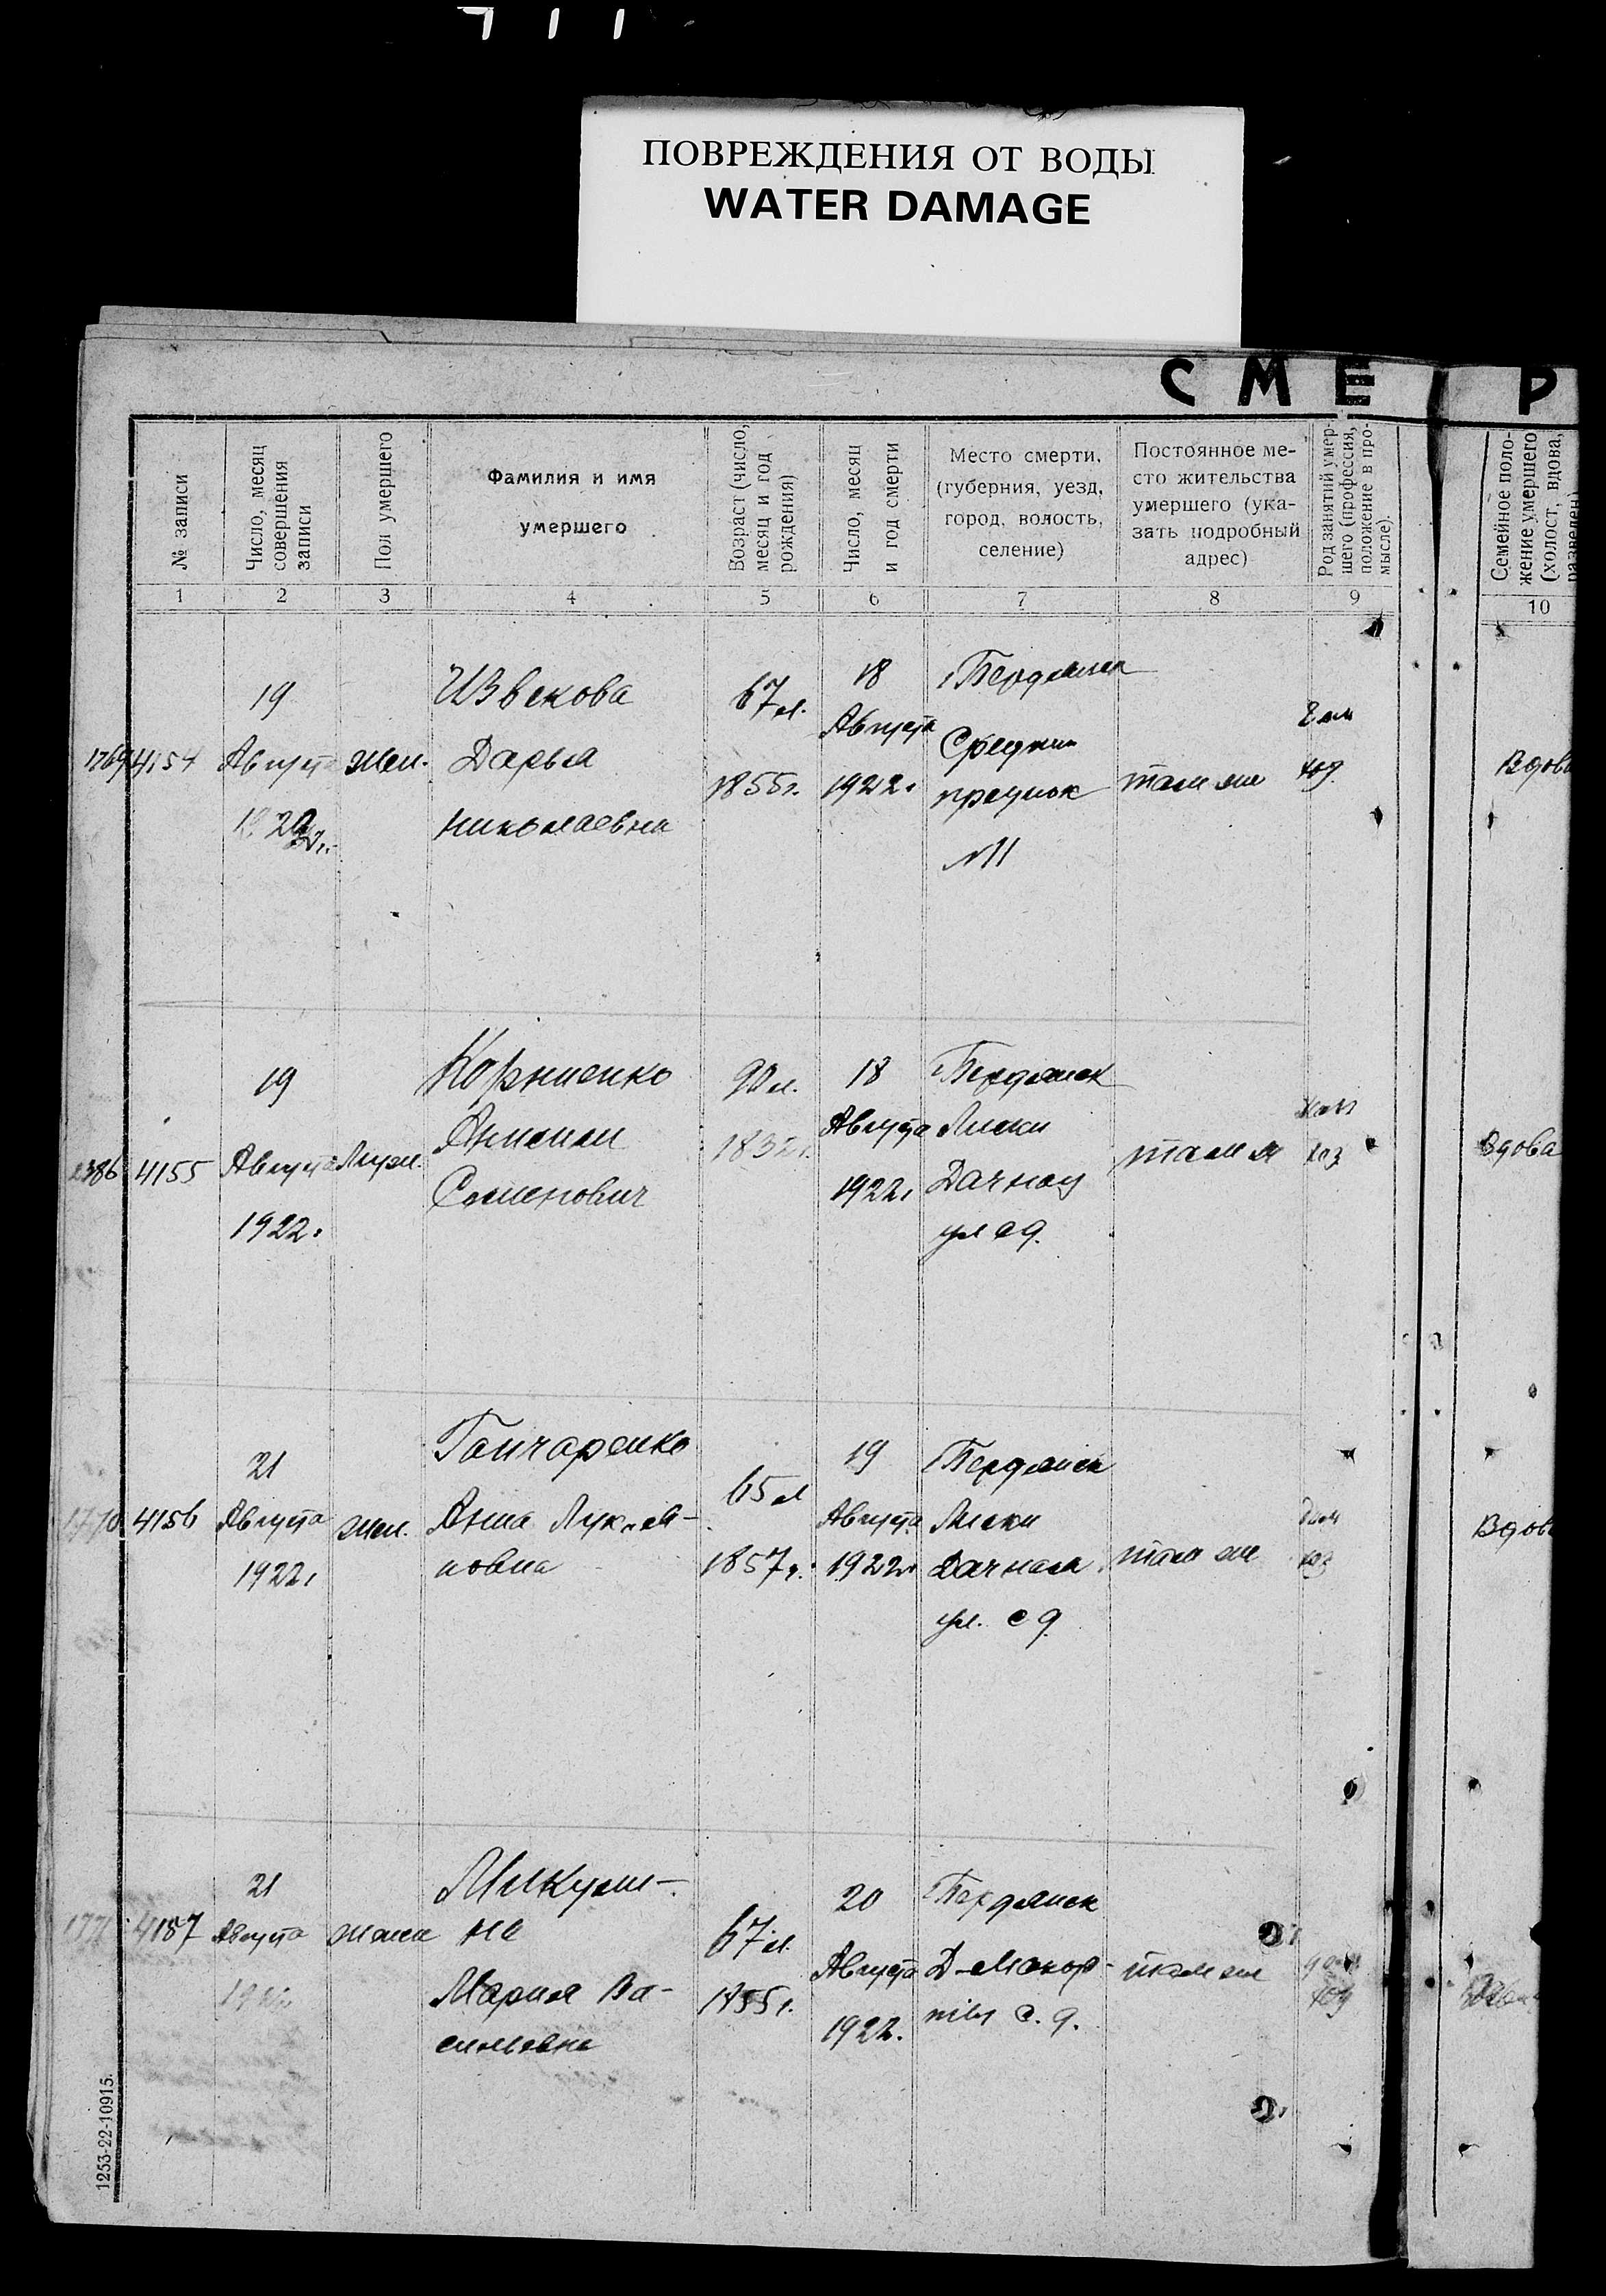 ПОВРЕЖДЕНИЯ ОТ ВОДЫ
WATER DAMAGE
СМЕ Р
№ записи
Число, месяц
совершения
записи
Пол умершего
Фамилия и имя
умершего
Возраст (число,
месяц и год
рождения)
Число, месяц
и год смерти
Место смерти,
(губерния, уезд,
город, волость,
селение)
Постоянное ме-
сто жительства
умершего (ука-
зать подробный
адрес)
Род занятий умер-
шего (профессия,
положение в про-
мысле).
Семейное поло-
жение умершего
(холост, вдова,
разведен)
1 2 3 4 5 6 7 8 9 10
1769
4154
19
Августа
жен.
Извекова
Дарья
Николаевна
67 л.
1855 г.
18
Августа
1922 г
Бердянск
Средний
№ 11
там же
4155
19
Августа
1922 г
Муж.
Корниенко
Семенович
90 л.
1832 г.
18
Августа
1922 г
Бердянск
Лиски
Дачная
ул с д.
хоз
Вдова
1770
4156
21
Августа
1922 г
жен.
Гончаренко
Анна
65 л
1857 г.
19
Августа
1922 г
Бердянск
Лиски
Дачная
ул. с д.
там же
дом
хоз
1771
4157
21
Августа
Микули-
на
Мария Ва-
сильевна
67 л.
1855 г.
20
Августа
1922.
Бердянск
с. д.
там же
1253-22-10915.